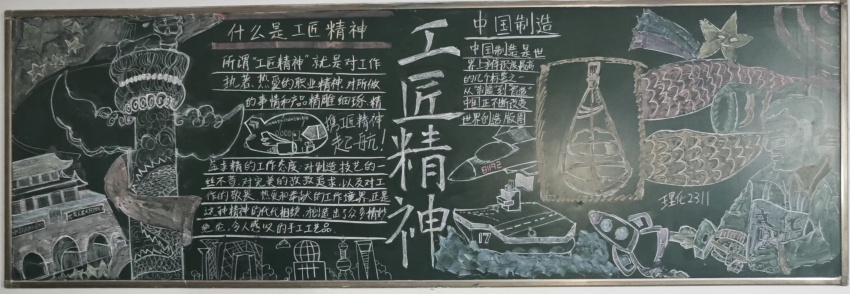 什么是工匠精神
所谓“工匠精神”就是对工作
执著、热爱的职业精神、对所做
的事情和产品精雕细琢、精
工匠精神
起航!
益求精的工作态度、对制造技艺的一
丝不苟、对完美的孜孜追求、以及对工
作的敬畏、热爱和奉献的工作境界、正是
这种精神的代代相授、创造出了众多精妙
绝伦、令人感叹的手工工艺品
工匠精神
中国制造
中国制造是世
界上
的几个标志之一
从
中国正不断改变
世界创造版图
81192
17
理化2311